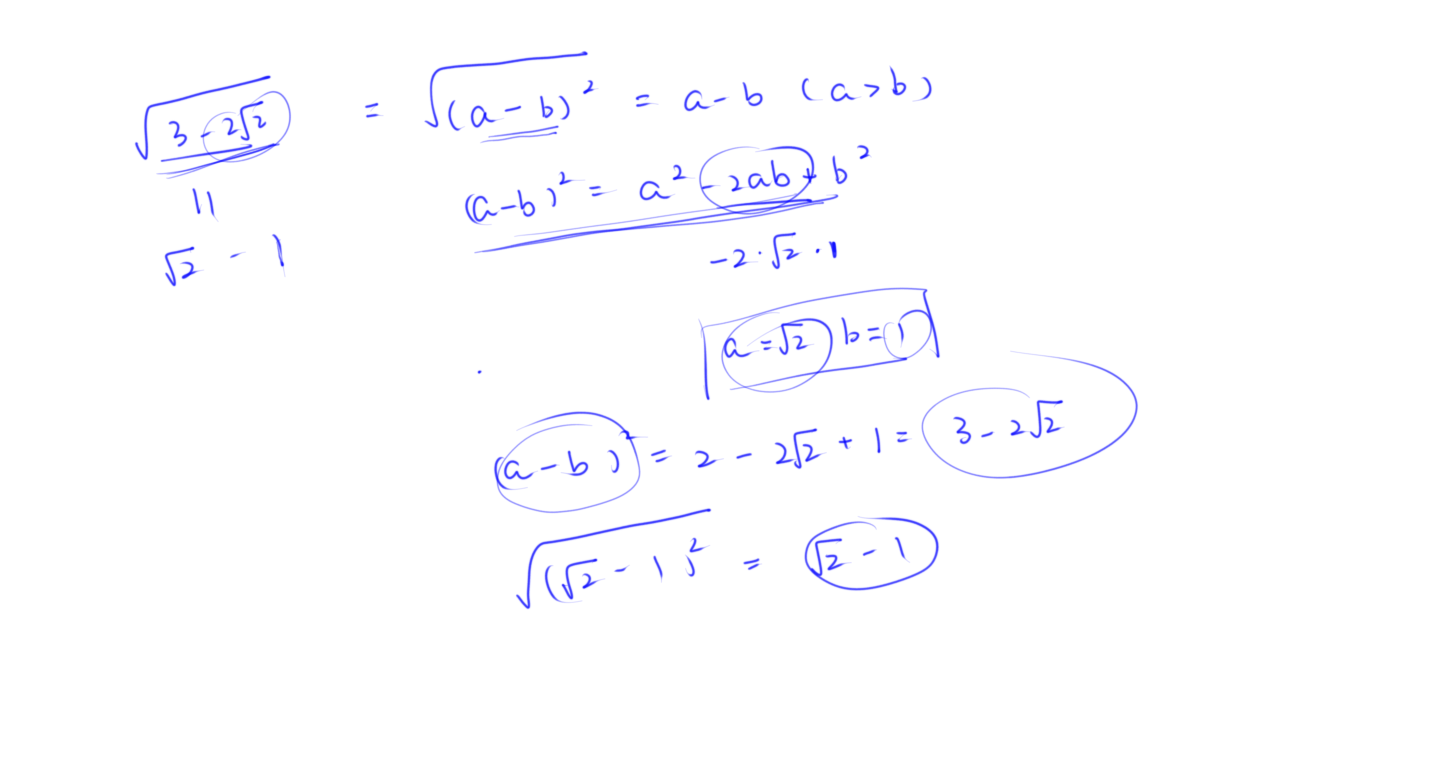 √(3 - 2√2) = √((a - b)²) = a - b (a > b)
||
(a - b)² = a² - 2ab + b²
√2 - 1
-2 · √2 · 1
a = √2 b = 1
(a - b)² = 2 - 2√2 + 1 = 3 - 2√2
√((√2 - 1)²) = √2 - 1